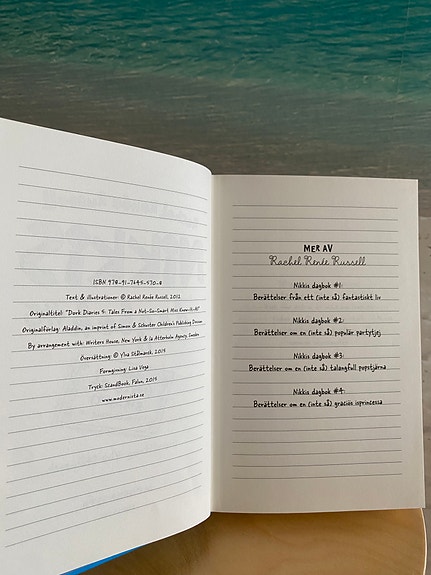 ISBN 978-91-7645-570-8
Text & illustrationer: © Rachel Renée Russell, 2012
Originaltitel: "Dork Diaries 5: Tales From a Not-So-Smart Miss Know-It-All"
Originalförlag: Aladdin, an imprint of Simon & Schuster Children's Publishing Division
By arrangement with: Writers House, New York & Ia Atterholm Agency, Sweden
Översättning: © Ylva Stålmarck, 2015
Formgivning: Lisa Vega
Tryck: ScandBook, Falun, 2015
www.modernista.se
MER AV
Rachel Renée Russell
Nikkis dagbok #1:
Berättelser från ett (inte så) fantastiskt liv
Nikkis dagbok #2:
Berättelser om en (inte så) populär partytjej
Nikkis dagbok #3:
Berättelser om en (inte så) talangfull popstjärna
Nikkis dagbok #4:
Berättelser om en (inte så) graciös isprincessa